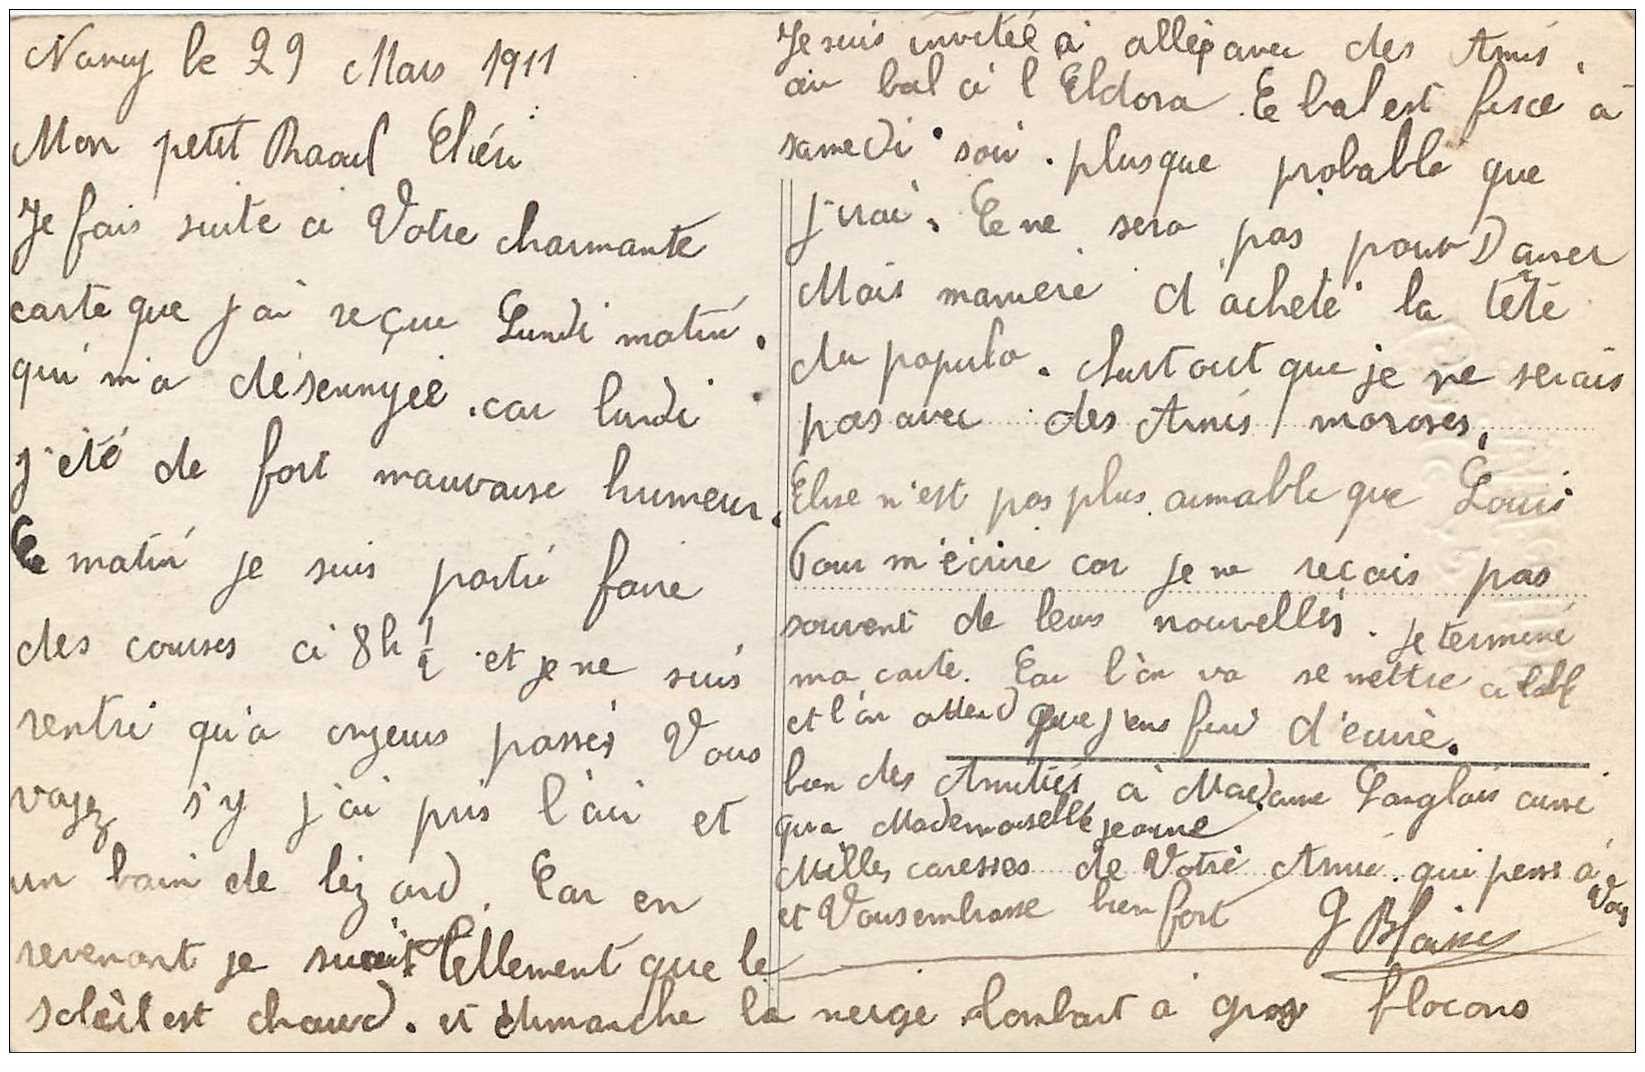 Nancy le 29 Mars 1911
Mon petit Raoul Chéri
Je fais suite a Votre charmante
carte que j ai reçue Lundi matin.
qui m'a désennyée. car lundi
j'été de fort mauvaise humeur.
Ce matin je suis partie faire
des courses a 8h 1/2 et je ne suis
rentri qu'a onjeurs passés Vous
voyez s'y j'ai pris l'air et
un bain de lézard. Car en
revenant je suait tellement que le
soleil est chaud. et dimanche la neige tombait a gros flocons
Je suis invitée a aller avec des Amis.
au bal a l Eldora. Ce bal est fixcé à
samedi soir. plusque probable que
j'irai. Ce ne sera pas pour Danser
Mais maniere d'acheté la tête
du populo. Surtout que je ne serais
pas avec des Amis moroses.
Elise n'est pas plus aimable que Louis
Pour m'écrire car je ne reçois pas
souvent de leurs nouvelles. je termine
ma carte. Car l'on va se mettre a table
et l'on attend que j'eus fini d'écrire.
bon des Amitiés à Madame Langlois aussi
qua Mademoiselle jeanne
Milles caresses de Votre Amie qui pense à Vous
et Vous embrasse bien fort G Blaise